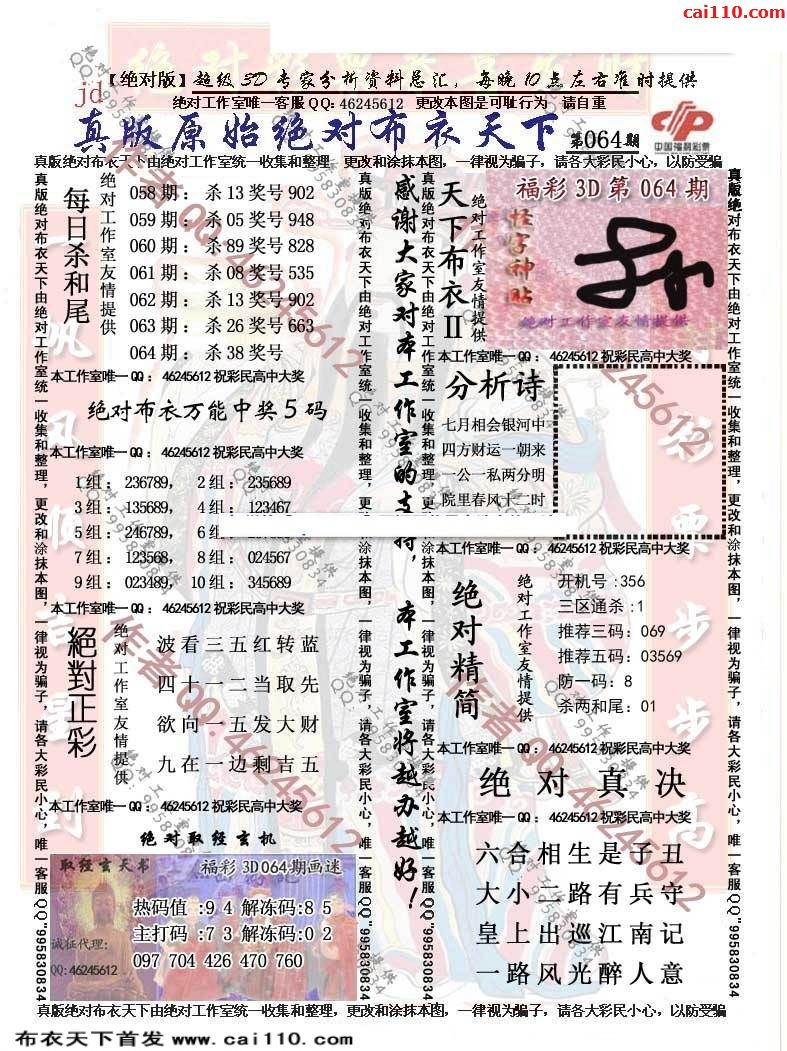 cai110.com
【绝对版】超级3D专家分析资料总汇，每晚10点左右准时提供
jd
绝对工作室唯一客服QQ: 46245612 更改本图是可耻行为 请自重
真版原始绝对布衣天下 第064期
中国福利彩票
真版绝对布衣天下由绝对工作室统一收集和整理，更改和涂抹本图，一律视为骗子，请各大彩民小心，以防受骗
每日杀和尾
绝对工作室友情提供
058期：杀13奖号902
059期：杀05奖号948
060期：杀89奖号828
061期：杀08奖号535
062期：杀13奖号902
063期：杀26奖号663
064期：杀38奖号
本工作室唯一QQ：46245612祝彩民高中大奖
绝对布衣万能中奖5码
本工作室唯一QQ：46245612祝彩民高中大奖
1组：236789， 2组：235689
3组：135689， 4组：123467
5组：246789， 6组
7组：123568， 8组：024567
9组：023489， 10组：345689
本工作室唯一QQ：46245612祝彩民高中大奖
絕對正彩
绝对工作室友情提供
波看三五红转蓝
四十一二当取先
欲向一五发大财
九在一边剩吉五
本工作室唯一QQ：46245612祝彩民高中大奖
绝对取经玄机
取经玄天书
福彩3D064期画谜
热码值:94 解冻码:85
主打码:73 解冻码:02
097 704 426 470 760
诚征代理:
QQ:46245612
感谢大家对本工作室的支持，本工作室将越办越好！
天下布衣II
绝对工作室友情提供
福彩3D第064期
怪字神贴
绝对工作室友情提供
本工作室唯一QQ：46245612祝彩民高中大奖
分析诗
七月相会银河中
四方财运一朝来
一公一私两分明
院里春风十二时
本工作室唯一QQ：46245612祝彩民高中大奖
绝对精简
绝对工作室友情提供
开机号:356
三区通杀:1
推荐三码:069
推荐五码:03569
防一码:8
杀两和尾:01
本工作室唯一QQ：46245612祝彩民高中大奖
绝对真决
本工作室唯一QQ：46245612祝彩民高中大奖
六合相生是子丑
大小二路有兵守
皇上出巡江南记
一路风光醉人意
真版绝对布衣天下由绝对工作室统一收集和整理，更改和涂抹本图，一律视为骗子，请各大彩民小心，唯一客服QQ"995830834
真版绝对布衣天下由绝对工作室统一收集和整理，更改和涂抹本图，一律视为骗子，请各大彩民小心，唯一客服QQ"995830834
真版绝对布衣天下由绝对工作室统一收集和整理，更改和涂抹本图，一律视为骗子，请各大彩民小心，唯一客服QQ"995830834
真版绝对布衣天下由绝对工作室统一收集和整理，更改和涂抹本图，一律视为骗子，请各大彩民小心，唯一客服QQ"995830834
真版绝对布衣天下由绝对工作室统一收集和整理，更改和涂抹本图，一律视为骗子，请各大彩民小心，以防受骗
作者QQ:46245612
作者QQ:46245612
布衣天下首发 www.cai110.com